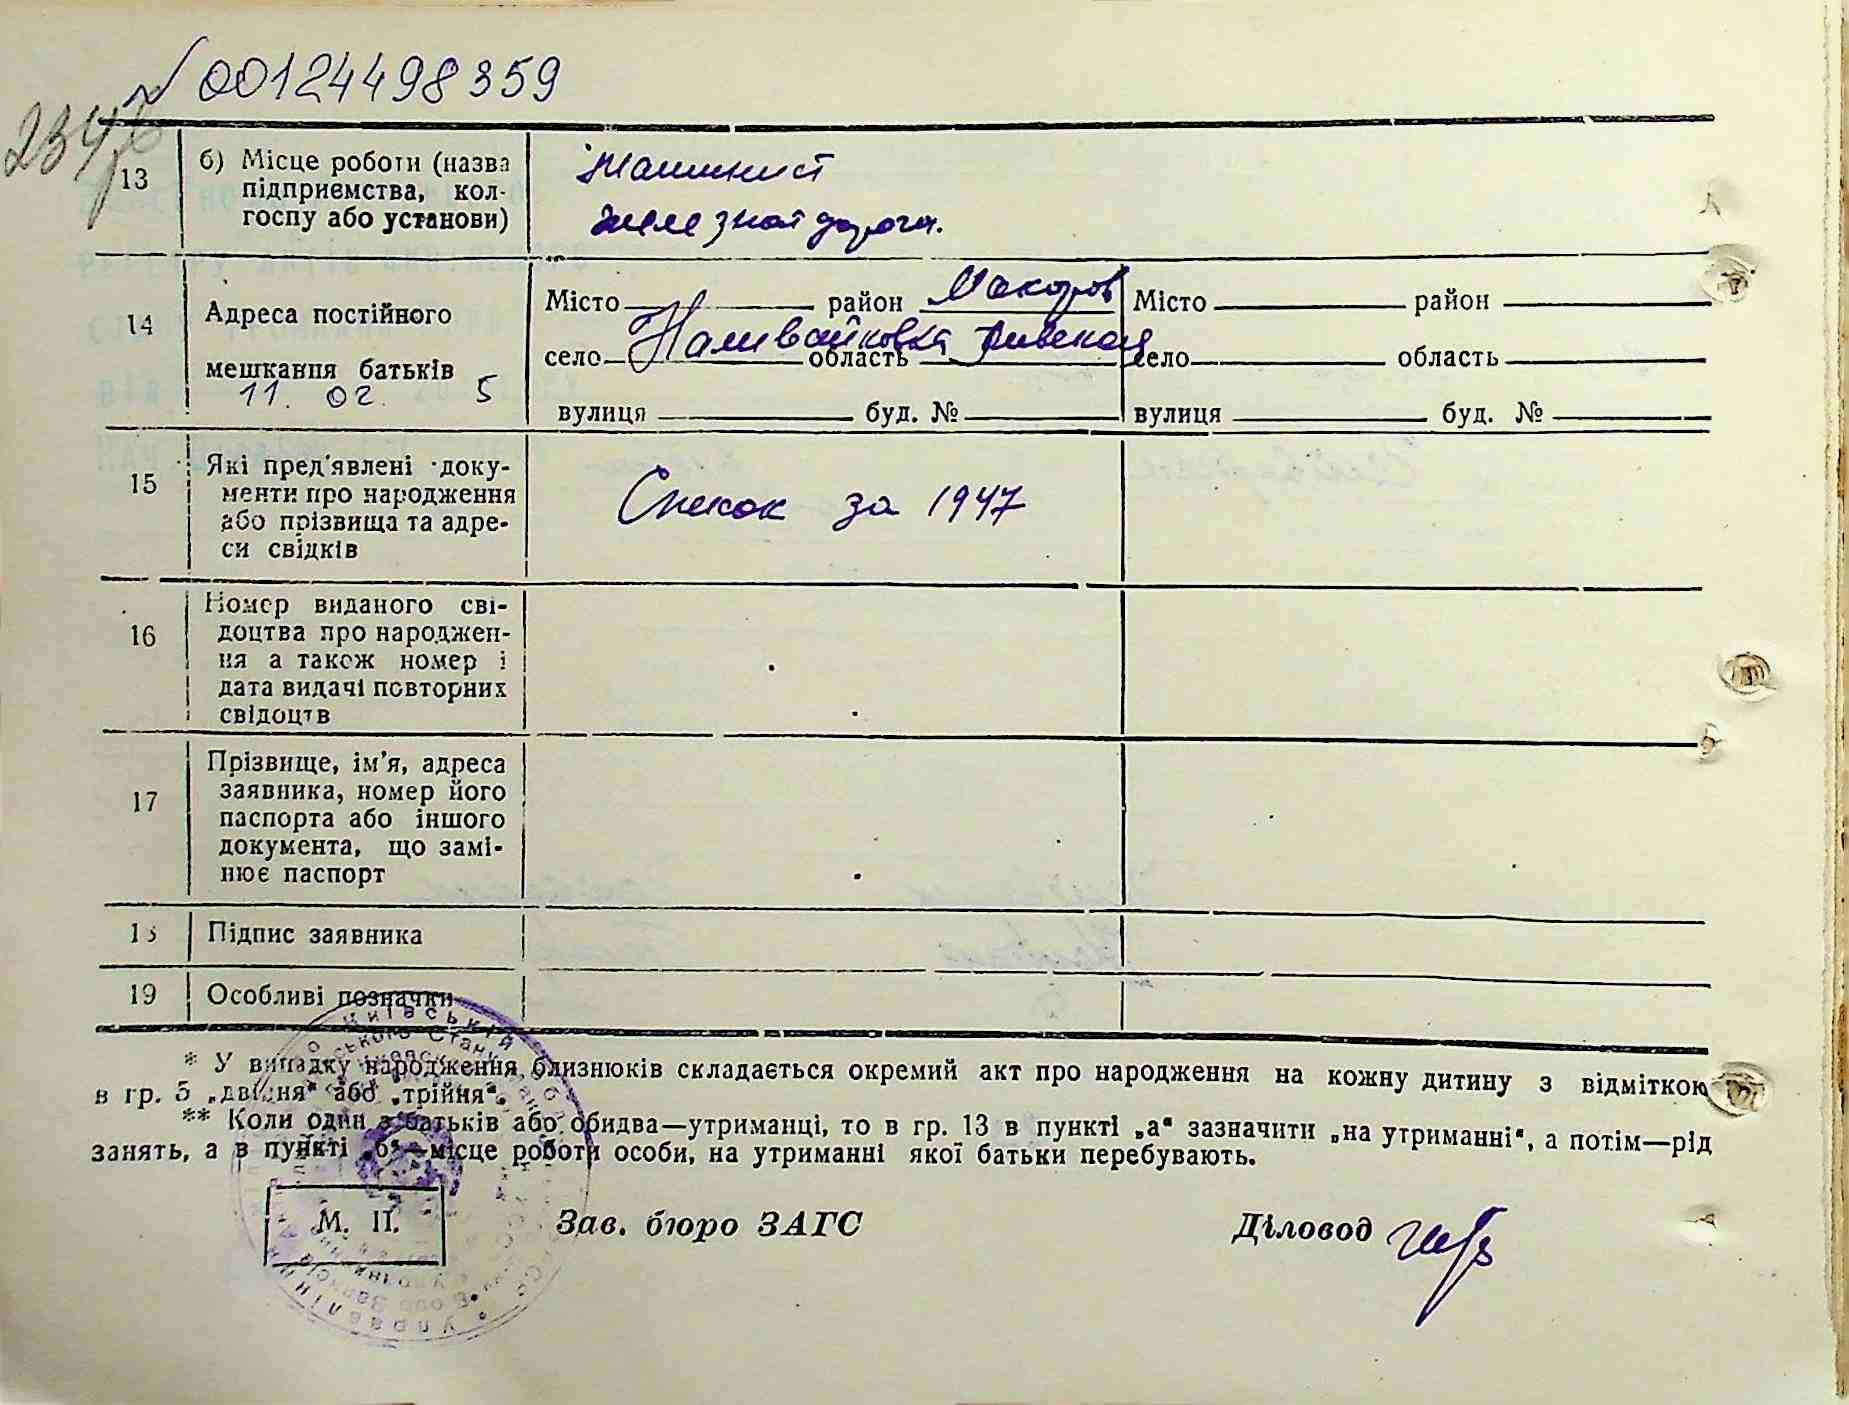 № 00124498359
234
13 б) Місце роботи (назва підприємства, кол-
госпу або установи)
Машинист
железной дороги.
14 Адреса постійного
мешкання батьків
11. 02. 5
Місто район Макаров
село Наливайковка область
вулиця буд. №
Місто район
село область
вулиця буд. №
15 Які пред'явлені доку-
менти про народження
або прізвища та адре-
си свідків
Список за 1947
16 Номер виданого сві-
доцтва про народжен-
ня а також номер і
дата видачі повторних
свідоцтв
17 Прізвище, ім'я, адреса
заявника, номер його
паспорта або іншого
документа, що замі-
нює паспорт
18 Підпис заявника
19 Особливі позначки
* У випадку народження близнюків складається окремий акт про народження на кожну дитину з відміткою
в гр. 5 „двійня“ або „трійня“.
** Коли один з батьків або обидва—утриманці, то в гр. 13 в пункті „а“ зазначити „на утриманні“, а потім—рід
занять, а в пункті „б“—місце роботи особи, на утриманні якої батьки перебувають.
М. П.
Зав. бюро ЗАГС
Діловод